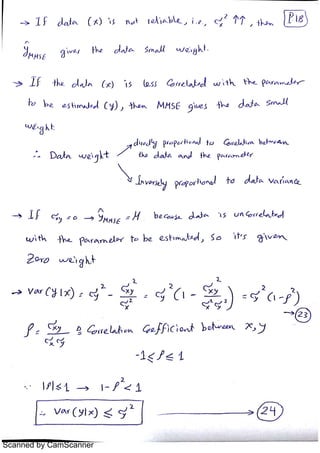 P18
→ If data (x) is not reliable, i.e., σx² ↑↑, then
ŷMMSE gives the data small weight.
→ If the data (x) is less Correlated with the parameter
to be estimated (y), then MMSE gives the data small
weight
directly proportional to Correlation between
∴ Data weight
the data and the parameter
Inversely proportional to data variance
→ If σxy = 0 → ŷMMSE = μ because data is uncorrelated
with the parameter to be estimated, so it's given
Zero weight
→ Var(y|x) = σy² - σxy²/σx² = σy² (1 - σxy²/σx²σy²) = σy² (1-ρ²)
→ 23
ρ = σxy/σxσy ≜ Correlation Coefficient between x, y
-1 ≤ ρ ≤ 1
∵ |ρ| ≤ 1 → 1-ρ² < 1
∴ Var(y|x) ≤ σy² → 24
Scanned by CamScanner